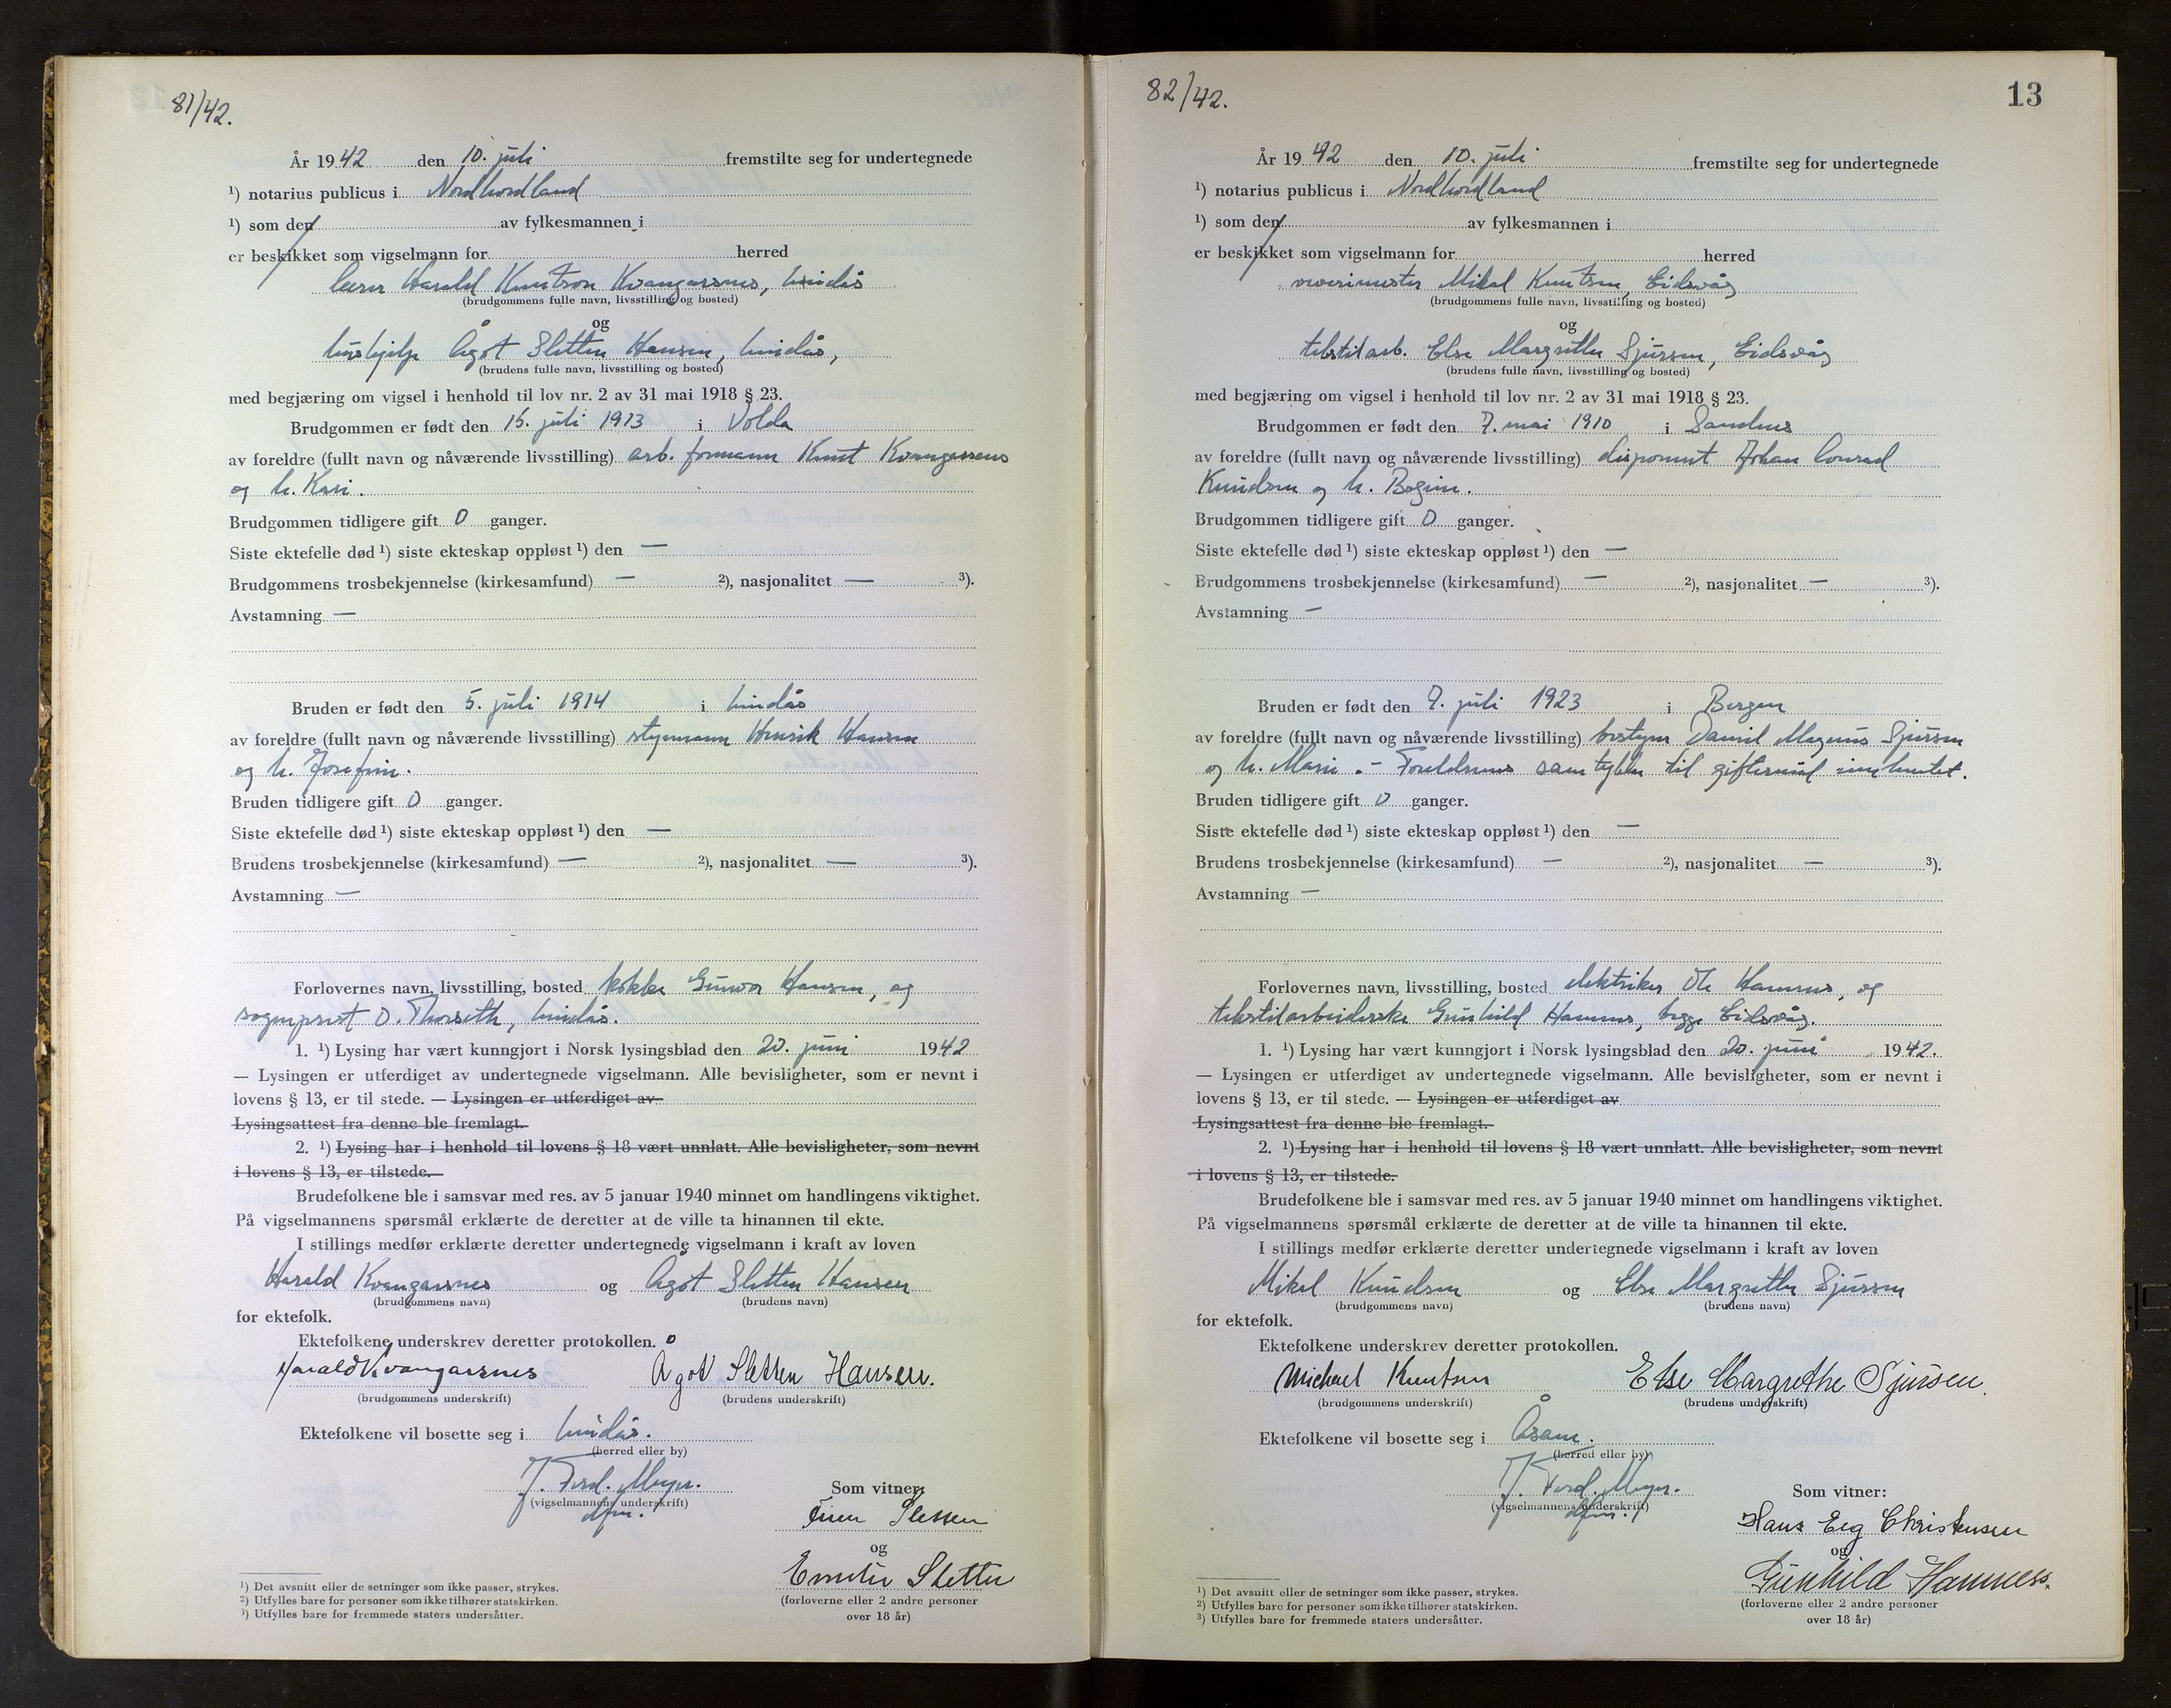 81/42.
År 1942 den 10. juli fremstilte seg for undertegnede
¹) notarius publicus i Nordhordland
¹) som den av fylkesmannen i
er beskikket som vigselmann for herred
lærer Harald Knutson Kvangarsnes, Lindås
(brudgommens fulle navn, livsstilling og bosted)
og
hushjelp Ågot Sletten Hansen, Lindås,
(brudens fulle navn, livsstilling og bosted)
med begjæring om vigsel i henhold til lov nr. 2 av 31 mai 1918 § 23.
Brudgommen er født den 15. juli 1913 i Volda
av foreldre (fullt navn og nåværende livsstilling) arb. formann Knut Kvangarsnes
og h. Kari.
Brudgommen tidligere gift 0 ganger.
Siste ektefelle død ¹) siste ekteskap oppløst ¹) den —
Brudgommens trosbekjennelse (kirkesamfund) — ²), nasjonalitet — ³).
Avstamning —
Bruden er født den 5. juli 1914 i Lindås
av foreldre (fullt navn og nåværende livsstilling) styrmann Henrik Hansen
og h. Josefine.
Bruden tidligere gift 0 ganger.
Siste ektefelle død ¹) siste ekteskap oppløst ¹) den —
Brudens trosbekjennelse (kirkesamfund) — ²), nasjonalitet — ³).
Avstamning —
Forlovernes navn, livsstilling, bosted kokke Gunvor Hansen, og
sogneprest O. Thorseth, Lindås.
1. ¹) Lysing har vært kunngjort i Norsk lysingsblad den 20. juni 1942
— Lysingen er utferdiget av undertegnede vigselmann. Alle bevisligheter, som er nevnt i
lovens § 13, er til stede. — Lysingen er utferdiget av
Lysingsattest fra denne ble fremlagt.
2. ¹) Lysing har i henhold til lovens § 18 vært unnlatt. Alle bevisligheter, som nevnt
i lovens § 13, er tilstede.
Brudefolkene ble i samsvar med res. av 5 januar 1940 minnet om handlingens viktighet.
På vigselmannens spørsmål erklærte de deretter at de ville ta hinannen til ekte.
I stillings medfør erklærte deretter undertegnede vigselmann i kraft av loven
Harald Kvangarsnes og Ågot Sletten Hansen
(brudgommens navn) (brudens navn)
for ektefolk.
Ektefolkene underskrev deretter protokollen.
Harald Kvangarsnes Ågot Sletten Hansen.
(brudgommens underskrift) (brudens underskrift)
Ektefolkene vil bosette seg i Lindås.
(herred eller by)
J. Ferd. Meyer.
(vigselmannens underskrift)
dfm.
Som vitner:
og
Emilie Sletten
(forloverne eller 2 andre personer
over 18 år)
¹) Det avsnitt eller de setninger som ikke passer, strykes.
²) Utfylles bare for personer som ikke tilhører statskirken.
³) Utfylles bare for fremmede staters undersåtter.
82/42.
13
År 1942 den 10. juli fremstilte seg for undertegnede
¹) notarius publicus i Nordhordland
¹) som den av fylkesmannen i
er beskikket som vigselmann for herred
Mikal Knutsen, Eidsvåg
(brudgommens fulle navn, livsstilling og bosted)
og
tekstilarb. Else Margrethe Sjursen, Eidsvåg
(brudens fulle navn, livsstilling og bosted)
med begjæring om vigsel i henhold til lov nr. 2 av 31 mai 1918 § 23.
Brudgommen er født den 7. mai 1910 i Sandnes
av foreldre (fullt navn og nåværende livsstilling) disponent Johan Conrad
Knudsen og h. Bogine.
Brudgommen tidligere gift 0 ganger.
Siste ektefelle død ¹) siste ekteskap oppløst ¹) den —
Brudgommens trosbekjennelse (kirkesamfund) — ²), nasjonalitet — ³).
Avstamning —
Bruden er født den 7. juli 1923 i Bergen
av foreldre (fullt navn og nåværende livsstilling) bestyrer Daniel Magnus Sjursen
og h. Marie. - Foreldrenes samtykke til giftermål innhentet.
Bruden tidligere gift 0 ganger.
Siste ektefelle død ¹) siste ekteskap oppløst ¹) den —
Brudens trosbekjennelse (kirkesamfund) — ²), nasjonalitet — ³).
Avstamning —
Forlovernes navn, livsstilling, bosted elektriker Ole Hamnes, og
tekstilarbeiderske Gunhild Hamnes, begge Eidsvåg.
1. ¹) Lysing har vært kunngjort i Norsk lysingsblad den 20. juni 1942.
— Lysingen er utferdiget av undertegnede vigselmann. Alle bevisligheter, som er nevnt i
lovens § 13, er til stede. — Lysingen er utferdiget av
Lysingsattest fra denne ble fremlagt.
2. ¹) Lysing har i henhold til lovens § 18 vært unnlatt. Alle bevisligheter, som nevnt
i lovens § 13, er tilstede.
Brudefolkene ble i samsvar med res. av 5 januar 1940 minnet om handlingens viktighet.
På vigselmannens spørsmål erklærte de deretter at de ville ta hinannen til ekte.
I stillings medfør erklærte deretter undertegnede vigselmann i kraft av loven
Mikal Knudsen og Else Margrethe Sjursen
(brudgommens navn) (brudens navn)
for ektefolk.
Ektefolkene underskrev deretter protokollen.
Michael Knutsen Else Margrethe Sjursen.
(brudgommens underskrift) (brudens underskrift)
Ektefolkene vil bosette seg i Åsane.
(herred eller by)
J. Ferd. Meyer.
(vigselmannens underskrift)
dfm.
Som vitner:
Hans Eeg Christensen
og
Gunhild Hamnes.
(forloverne eller 2 andre personer
over 18 år)
¹) Det avsnitt eller de setninger som ikke passer, strykes.
²) Utfylles bare for personer som ikke tilhører statskirken.
³) Utfylles bare for fremmede staters undersåtter.